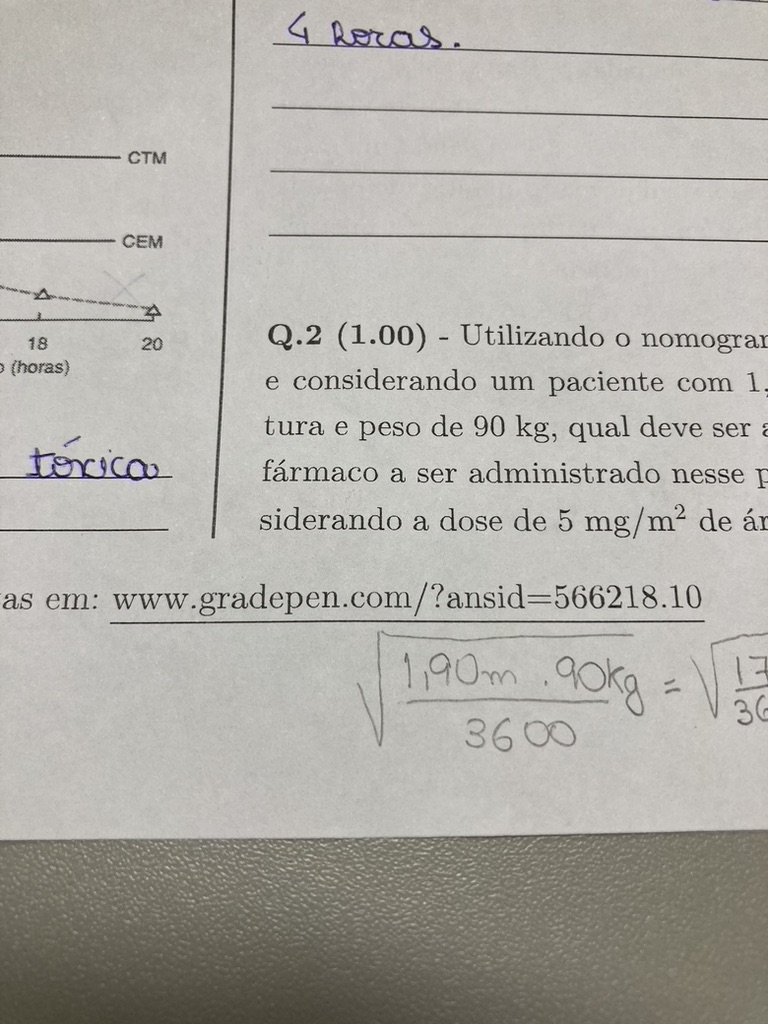 4 horas.
CTM
CEM
18 20
(horas)
tóxica
Q.2 (1.00) - Utilizando o
e considerando um paciente com 1,
tura e peso de 90 kg, qual deve ser
fármaco a ser administrado nesse
siderando a dose de 5 mg/m² de
as em: www.gradepen.com/?ansid=566218.10
√(1,90m . 90kg / 3600) = √(17 / 36